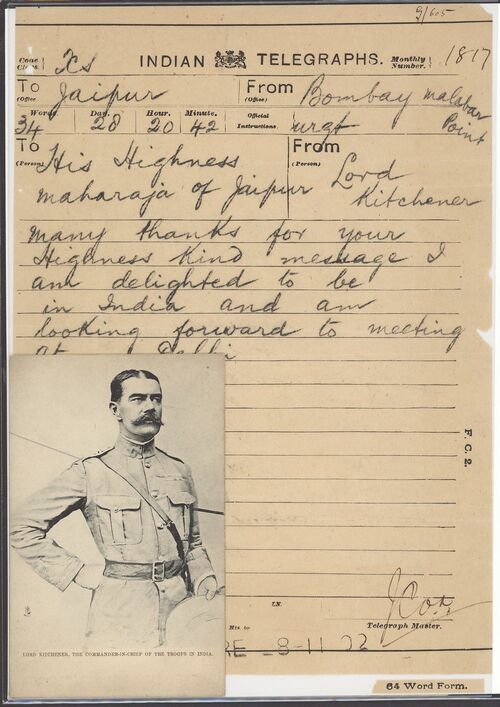 9/605
Code Class. Xs INDIAN TELEGRAPHS. Monthly Number. 1817
To (Office) Jaipur From (Office) Bombay Malabar Point
Words. Day. Hour. Minute. Official Instructions.
34 28 20 42 urgt
To (Person) His Highness From (Person) Lord
Maharaja of Jaipur Kitchener
Many thanks for your
Highness kind message I
am delighted to be
in India and am
looking forward to meeting
at Delhi
F.C.2.
I.N.
Mts. to
Telegraph Master.
8-11 02
LORD KITCHENER, THE COMMANDER-IN-CHIEF OF THE TROOPS IN INDIA.
64 Word Form.